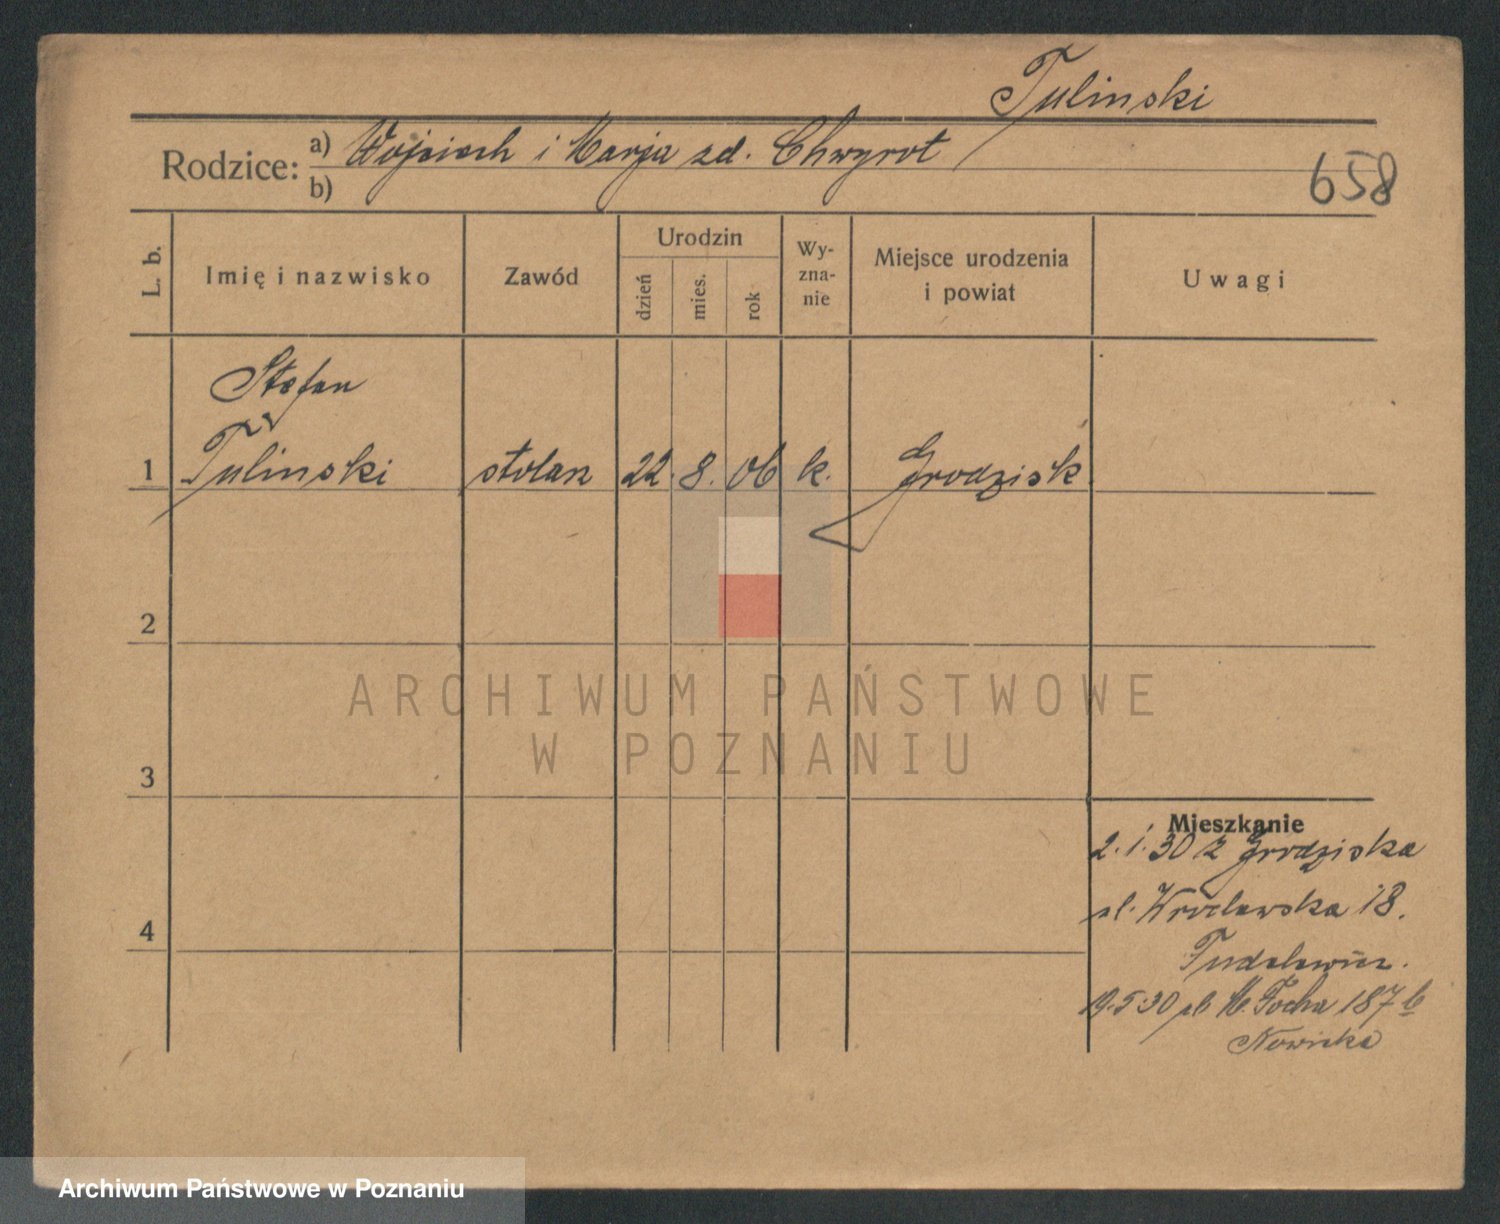 Tulinski
Rodzice: a) Wojciech i Marja zd. Chwyrot
b)
658
L. b.
Imię i nazwisko
Zawód
Urodzin
dzień
mies.
rok
Wy-
zna-
nie
Miejsce urodzenia
i powiat
Uwagi
Stefan
1 Tulinski stolarz 22. 8. 06 k. Grodzisk
2
ARCHIWUM PAŃSTWOWE
W POZNANIU
3
Mieszkanie
2.1.30 z Grodziska
ul. Wrocławska 18.
4
19.5.30 ul M. Focha 187 b
Nowicka
Archiwum Państwowe w Poznaniu